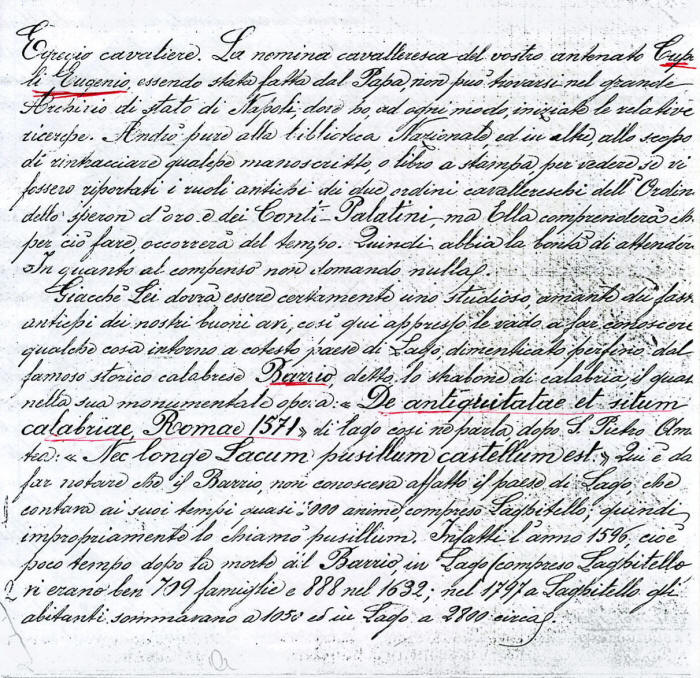 Egregio cavaliere. La nomina cavalleresca del vostro antenato Cupe
li Eugenio, essendo stata fatta dal Papa, non può trovarsi nel grande
Archivio di stato di Napoli, dove ho, ad ogni modo, iniziate le relative
ricerche. Andrò pure alla biblioteca Nazionale, ed in altre, allo scopo
di rintracciare qualche manoscritto, o libro a stampa, per vedere se vi
fossero riportati i ruoli antichi dei due ordini cavallereschi dell'Ordin
dello speron d'oro e dei Conti-Palatini ma Ella comprenderà ch
per ciò fare, occorrerà del tempo. Quindi abbia la bontà di attender
In quanto al compenso non domando nulla.
Giacchè Lei dovrà essere certamente uno studioso amante dei fasti
antichi dei nostri buoni avi, così qui appresso le vado a far conoscere
qualche cosa intorno a cotesto paese di Lago, dimenticato perfino dal
famoso storico calabrese Barrio, detto lo strabone di calabria, il qual
nella sua monumentale opera: « De antiquitatae et situm
calabriae, Romae 1571 » di Lago così ne parla, dopo S. Pietro Am
tea: « Nec longe Lacum pusillum castellum est » Qui è da
far notare che il Barrio, non conosceva affatto il paese di Lago, che
contava ai suoi tempi, quasi 3000 anime, compreso Laghitello, quindi
impropriamente lo chiamò pusillium. Infatti l'anno 1596, cioè
poco tempo dopo la morte del Barrio, in Lago (compreso Laghitello
vi erano ben 709 famiglie e 888 nel 1632; nel 1797 a Laghitello gli
abitanti sommavano a 1050 ed in Lago a 2800 circa.